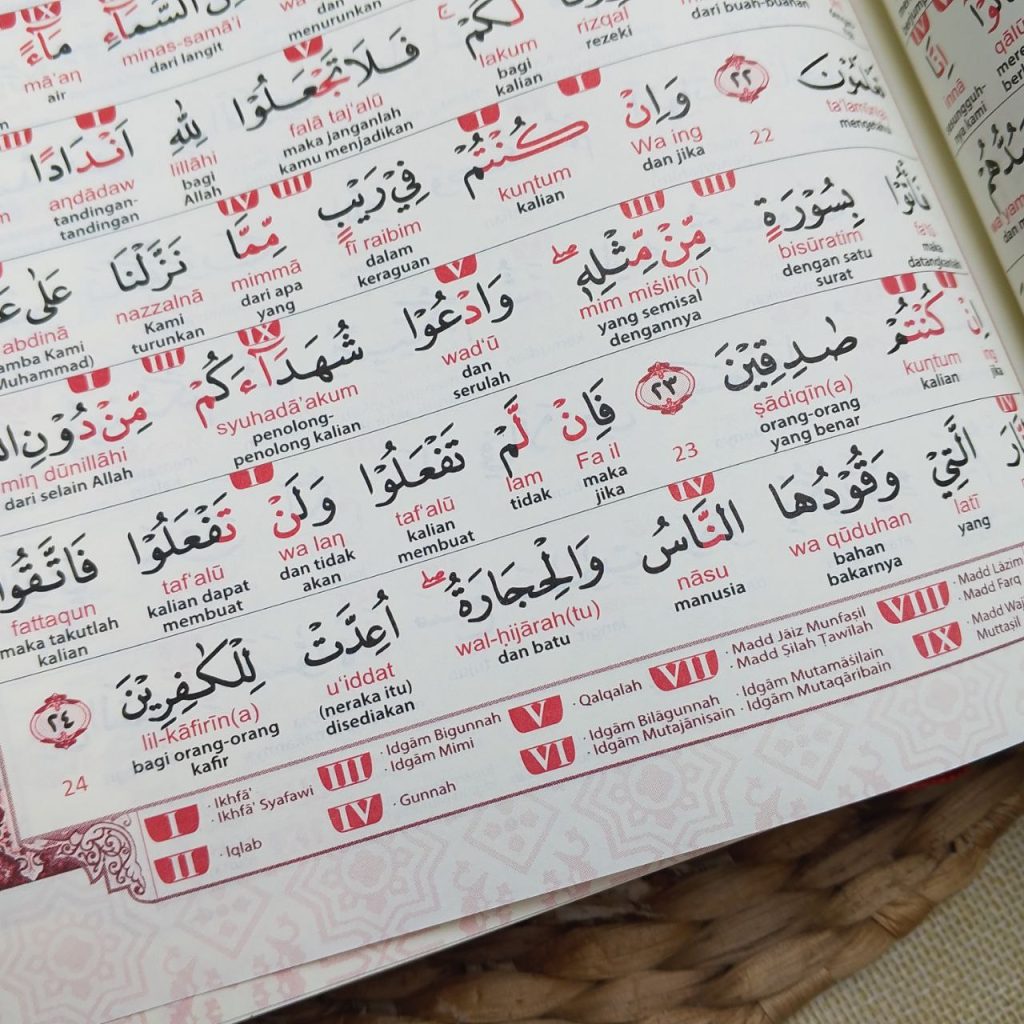 السَّمَاۤءِ مَاۤءً
minas-samā'i mā'aṇ
menurunkan dari langit air
لَّكُمْ فَلَا تَجْعَلُوْا لِلّٰهِ اَنْدَادًا
rizqal lakum falā taj'alū lillāhi aṇdādaw
dari buah-buahan rezeki bagi kalian maka janganlah kamu menjadikan bagi Allah tandingan-tandingan
تَعْلَمُوْنَ ٢٢ وَاِنْ كُنْتُمْ فِيْ رَيْبٍ مِّمَّا نَزَّلْنَا عَلٰى
22 Wa ing kuṇtum fī raibim mimmā nazzalnā abdinā
dan jika kalian dalam keraguan dari apa yang Kami turunkan amba Kami Muhammad)
فَأْتُوْا بِسُوْرَةٍ مِّنْ مِّثْلِهٖ وَادْعُوْا شُهَدَاۤءَكُمْ مِّنْ دُوْنِ
bisūratim mim miṡlih(ī) wad'ū syuhadā'akum miṇ dūnillāhi
maka datangkanlah dengan satu surat yang semisal dengannya dan serulah penolong-penolong kalian dari selain Allah
اِنْ كُنْتُمْ صٰدِقِيْنَ ٢٣ فَاِنْ لَّمْ تَفْعَلُوْا وَلَنْ تَفْعَلُوْا فَاتَّقُوا
ing kuṇtum ṣādiqīn(a) 23 Fa il lam taf'alū wa laṇ taf'alū fattaqun
jika kalian orang-orang yang benar maka jika tidak kalian membuat dan tidak akan kalian dapat membuat maka takutlah kalian
الَّتِيْ وَقُوْدُهَا النَّاسُ وَالْحِجَارَةُ اُعِدَّتْ لِلْكٰفِرِيْنَ ٢٤
latī wa qūduhan nāsu wal-hijārah(tu) u'iddat lil-kāfirīn(a) 24
yang bahan bakarnya manusia dan batu (neraka itu) disediakan bagi orang-orang kafir
I · Ikhfā' · Ikhfā' Syafawi
II · Iqlab
III · Idgām Bigunnah · Idgām Mimi
IV · Gunnah
V · Qalqalah
VI · Idgām Bilāgunnah · Idgām Mutajānisain · Idgām Mutamāṡilain · Idgām Mutaqāribain
VII · Madd Jāiz Munfaṣil · Madd Ṣilah Ṭawilah
VIII · Madd Lāzim · Madd Farq
IX · Madd Waji Muttaṣil